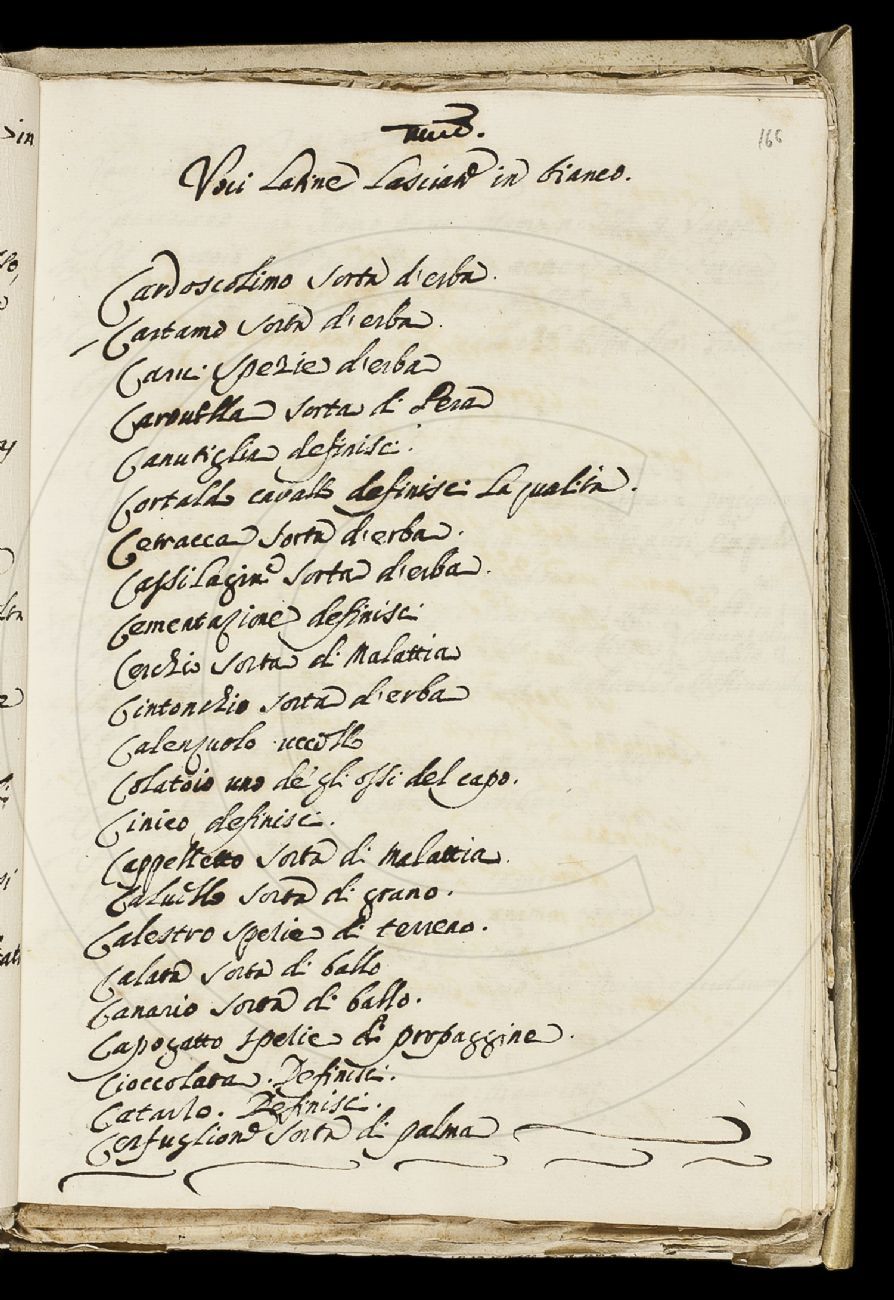 166
Voci Latine Lasciate in bianco.
Cardoscolimo sorta d'erba.
Cartamo sorta d'erba.
Carvi spezie d'erba
Carovella sorta di Pera
Canutiglia definisci.
Cortaldo cavallo definisci La qualità.
Cetracca sorta d'erba.
Cassilagine sorta d'erba.
Cementazione definisci
Cerchio sorta di Malattia
Cintonchio sorta d'erba
Calenzuolo uccello
Colatoio uno de gli ossi del capo.
Cinico definisci.
Cappelletto sorta di Malattia.
Calvello sorta di grano.
Calestro spezie di terreno.
Calata sorta di ballo
Canario sorta di ballo.
Capogatto spezie di propaggine.
Cioccolata. Definisci.
Catarzo. Definisci.
Cerfuglione sorta di palma